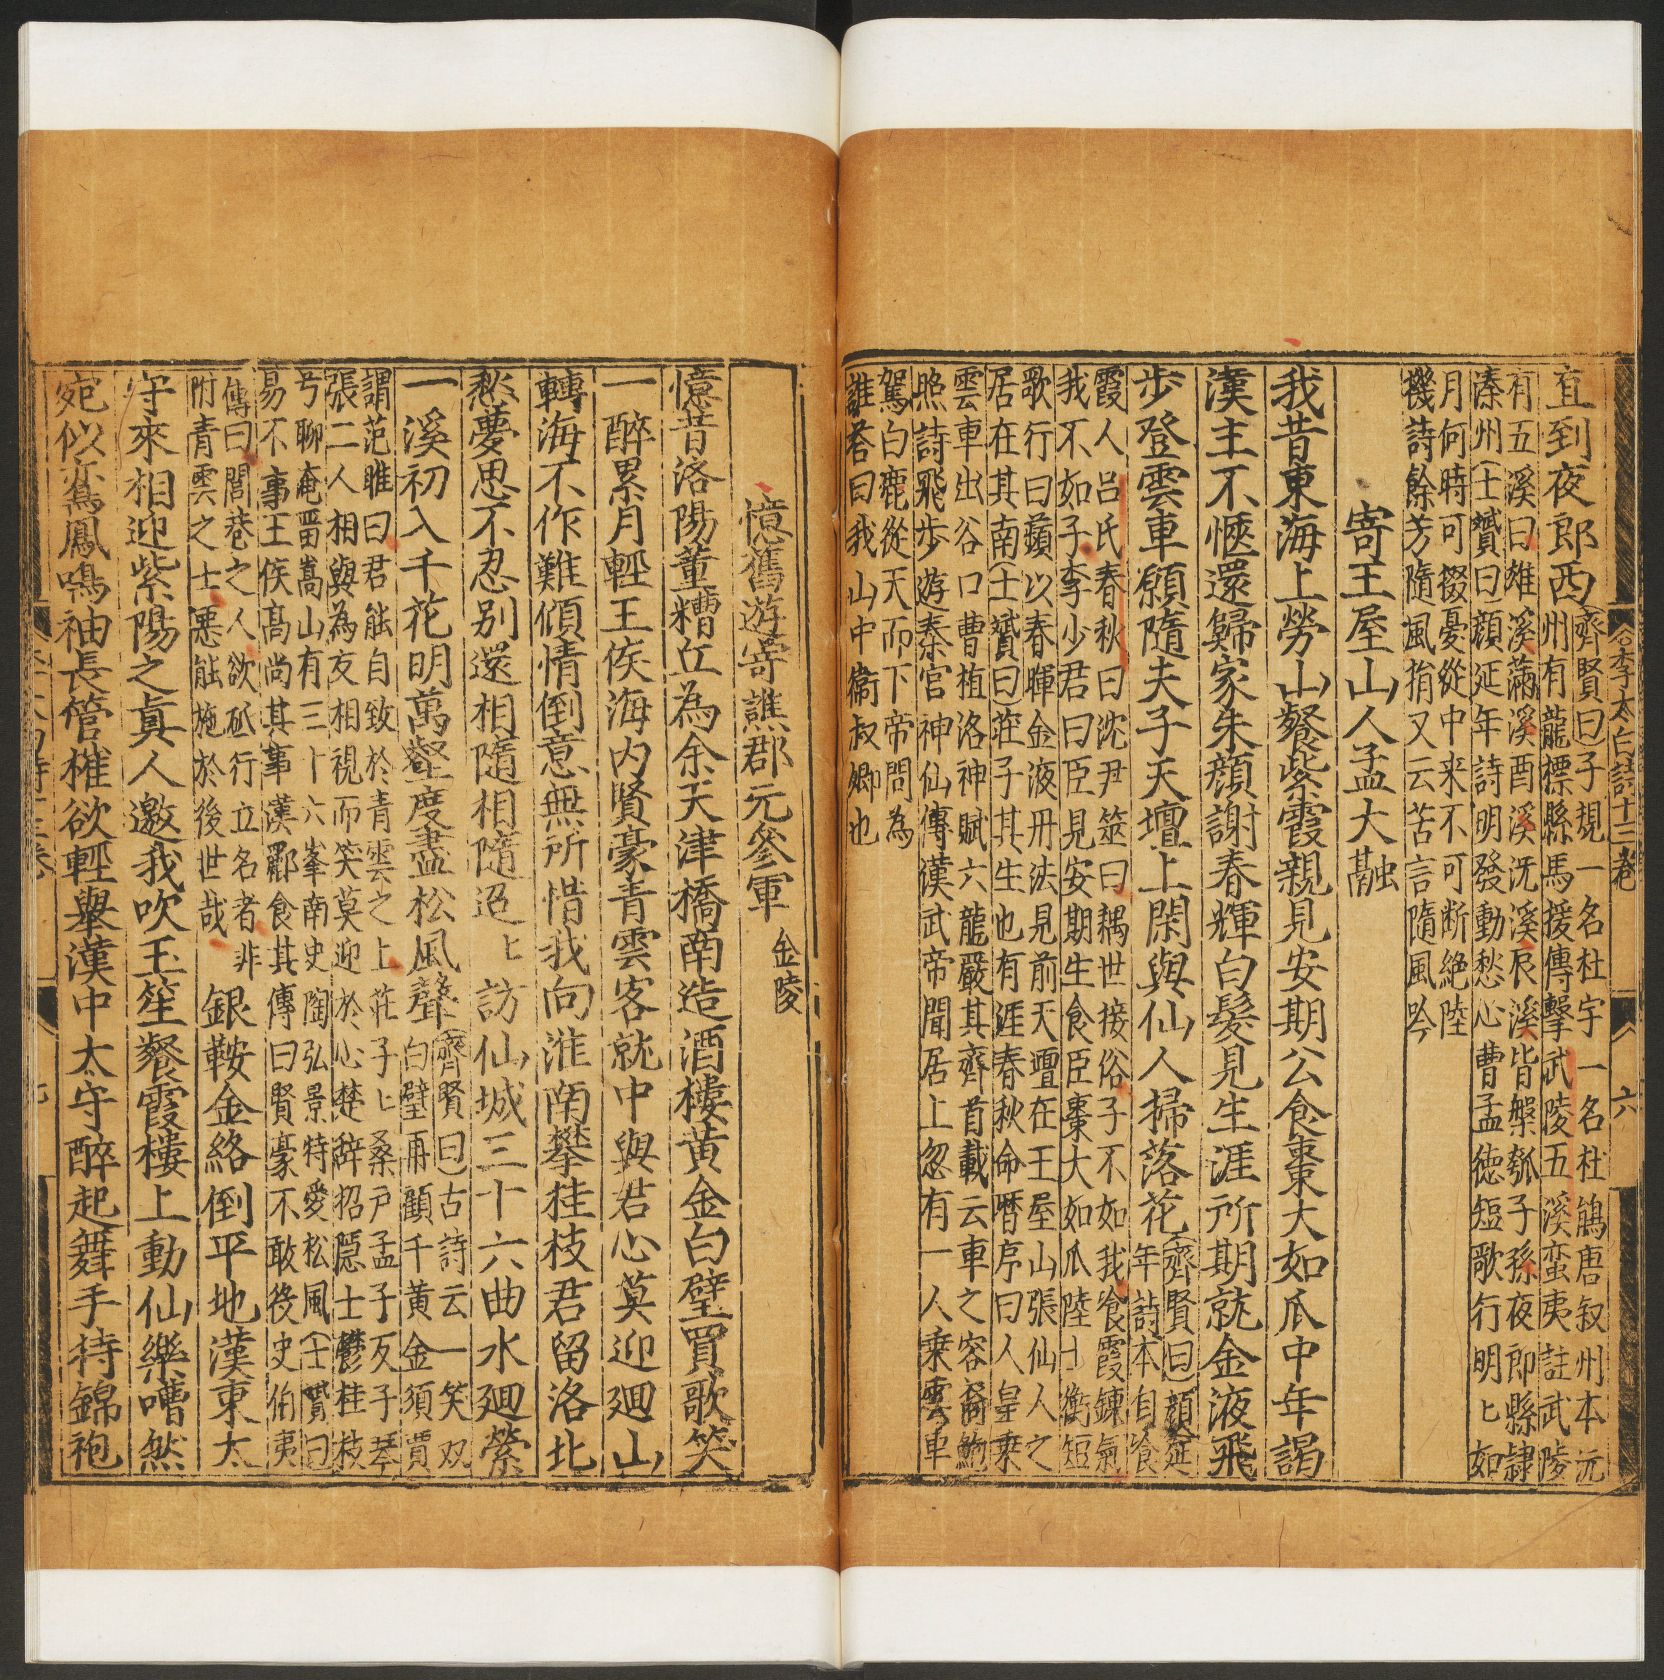 李太白詩十三卷　六
直到夜郎西
齊賢曰子規一名杜宇一名杜鵑唐叙州本元
州有龍標縣馬援傳擊武陵五溪蛮夷註武陵
有五溪曰雄溪溪蒲溪酉溪沅溪辰溪皆槃瓠子孫夜郎縣隷
溱州士贇曰顔延年詩明發動愁心曹孟徳短歌行明〻如
月何時可掇憂從中来不可断絶陸
機詩餘芳隨風捐又云苦言隨風吟
寄王屋山人孟大融
我昔東海上勞山餐紫霞親見安期公食棗大如爪中年謁
漢主不愜還歸家朱顔謝春輝白髮見生涯所期就金液飛
步登雲車願隨夫子天壇上閑與仙人掃落花
齊賢曰顔延
年詩本自湌
霞人呂氏春秋曰沈尹筮曰耦世接俗子不如我湌霞鍊氣
我不如子李少君曰臣見安期生食臣棗大如爪陸士衡短
歌行曰蘋以春暉金液丹法見前天壇在王屋山張仙人之
居在其南士贇曰莊子其生也有涯春秋命暦序曰人皇乗
雲車出谷口曹植洛神賦六龍嚴其齊首載云車之容裔鮑
照詩飛步遊秦宫神仙傳漢武帝閒居上忽有一人乗雲車
駕白鹿從天而下帝問為
誰荅曰我山中衞叔卿也
憶舊遊寄譙郡元參軍　金陵
憶昔洛陽董糟丘為余天津橋南造酒樓黄金白璧買歌笑
一醉累月輕王侯海内賢豪青雲客就中與君心莫迎廻山
轉海不作難傾情倒意無所惜我向淮南攀桂枝君留洛北
愁夢思不忍别還相隨相隨迢〻訪仙城三十六曲水廻縈
一溪初入千花明萬壑度盡松風聲
齊賢曰古詩云一笑双
白璧再顧千黄金須賈
謂范睢曰君能自致於青雲之上莊子〻桑戸孟子反子琴
張二人相與為友相視而笑莫迎於心楚辭招隠士鬱桂枝
兮聊淹畱嵩山有三十六峯南史陶弘景特愛松風士贇曰
易不事王侯髙尚其事漢酈食其傳曰賢豪不敢後史伯夷
傳曰閭巷之人欲砥行立名者非
附青雲之士悪能施於後世哉
銀鞍金絡倒平地漢東太
守來相迎紫陽之眞人邀我吹玉笙餐霞樓上動仙樂嘈然
宛似鸞鳳鳴袖長管催欲輕舉漢中太守醉起舞手持錦袍